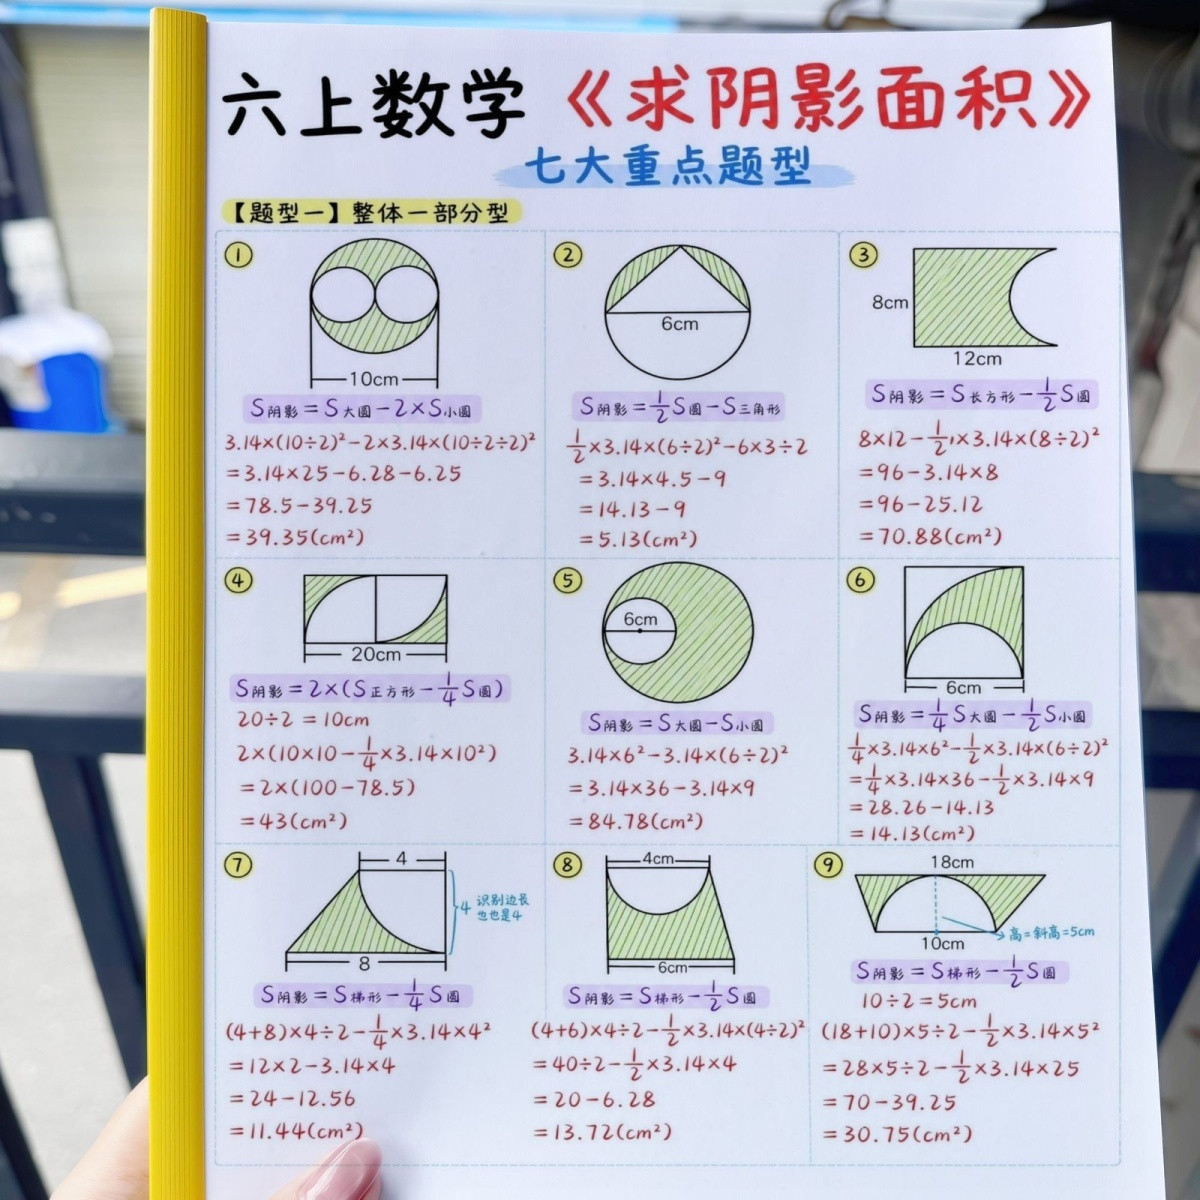 六上数学《求阴影面积》
七大重点题型
【题型一】整体一部分型
①
10cm
S阴影=S大圆-2×S小圆
3.14×(10÷2)²-2×3.14×(10÷2÷2)²
=3.14×25-6.28-6.25
=78.5-39.25
=39.35(cm²)
②
6cm
S阴影=1/2S圆-S三角形
1/2×3.14×(6÷2)²-6×3÷2
=3.14×4.5-9
=14.13-9
=5.13(cm²)
③
8cm
12cm
S阴影=S长方形-1/2S圆
8×12-1/2×3.14×(8÷2)²
=96-3.14×8
=96-25.12
=70.88(cm²)
④
20cm
S阴影=2×(S正方形-1/4S圆)
20÷2=10cm
2×(10×10-1/4×3.14×10²)
=2×(100-78.5)
=43(cm²)
⑤
6cm
S阴影=S大圆-S小圆
3.14×6²-3.14×(6÷2)²
=3.14×36-3.14×9
=84.78(cm²)
⑥
6cm
S阴影=1/4S大圆-1/2S小圆
1/4×3.14×6²-1/2×3.14×(6÷2)²
=1/4×3.14×36-1/2×3.14×9
=28.26-14.13
=14.13(cm²)
⑦
4
4 识别边长
也也是4
8
S阴影=S梯形-1/4S圆
(4+8)×4÷2-1/4×3.14×4²
=12×2-3.14×4
=24-12.56
=11.44(cm²)
⑧
4cm
6cm
S阴影=S梯形-1/2S圆
(4+6)×4÷2-1/2×3.14×(4÷2)²
=40÷2-1/2×3.14×4
=20-6.28
=13.72(cm²)
⑨
18cm
高=斜高=5cm
10cm
S阴影=S梯形-1/2S圆
10÷2=5cm
(18+10)×5÷2-1/2×3.14×5²
=28×5÷2-1/2×3.14×25
=70-39.25
=30.75(cm²)